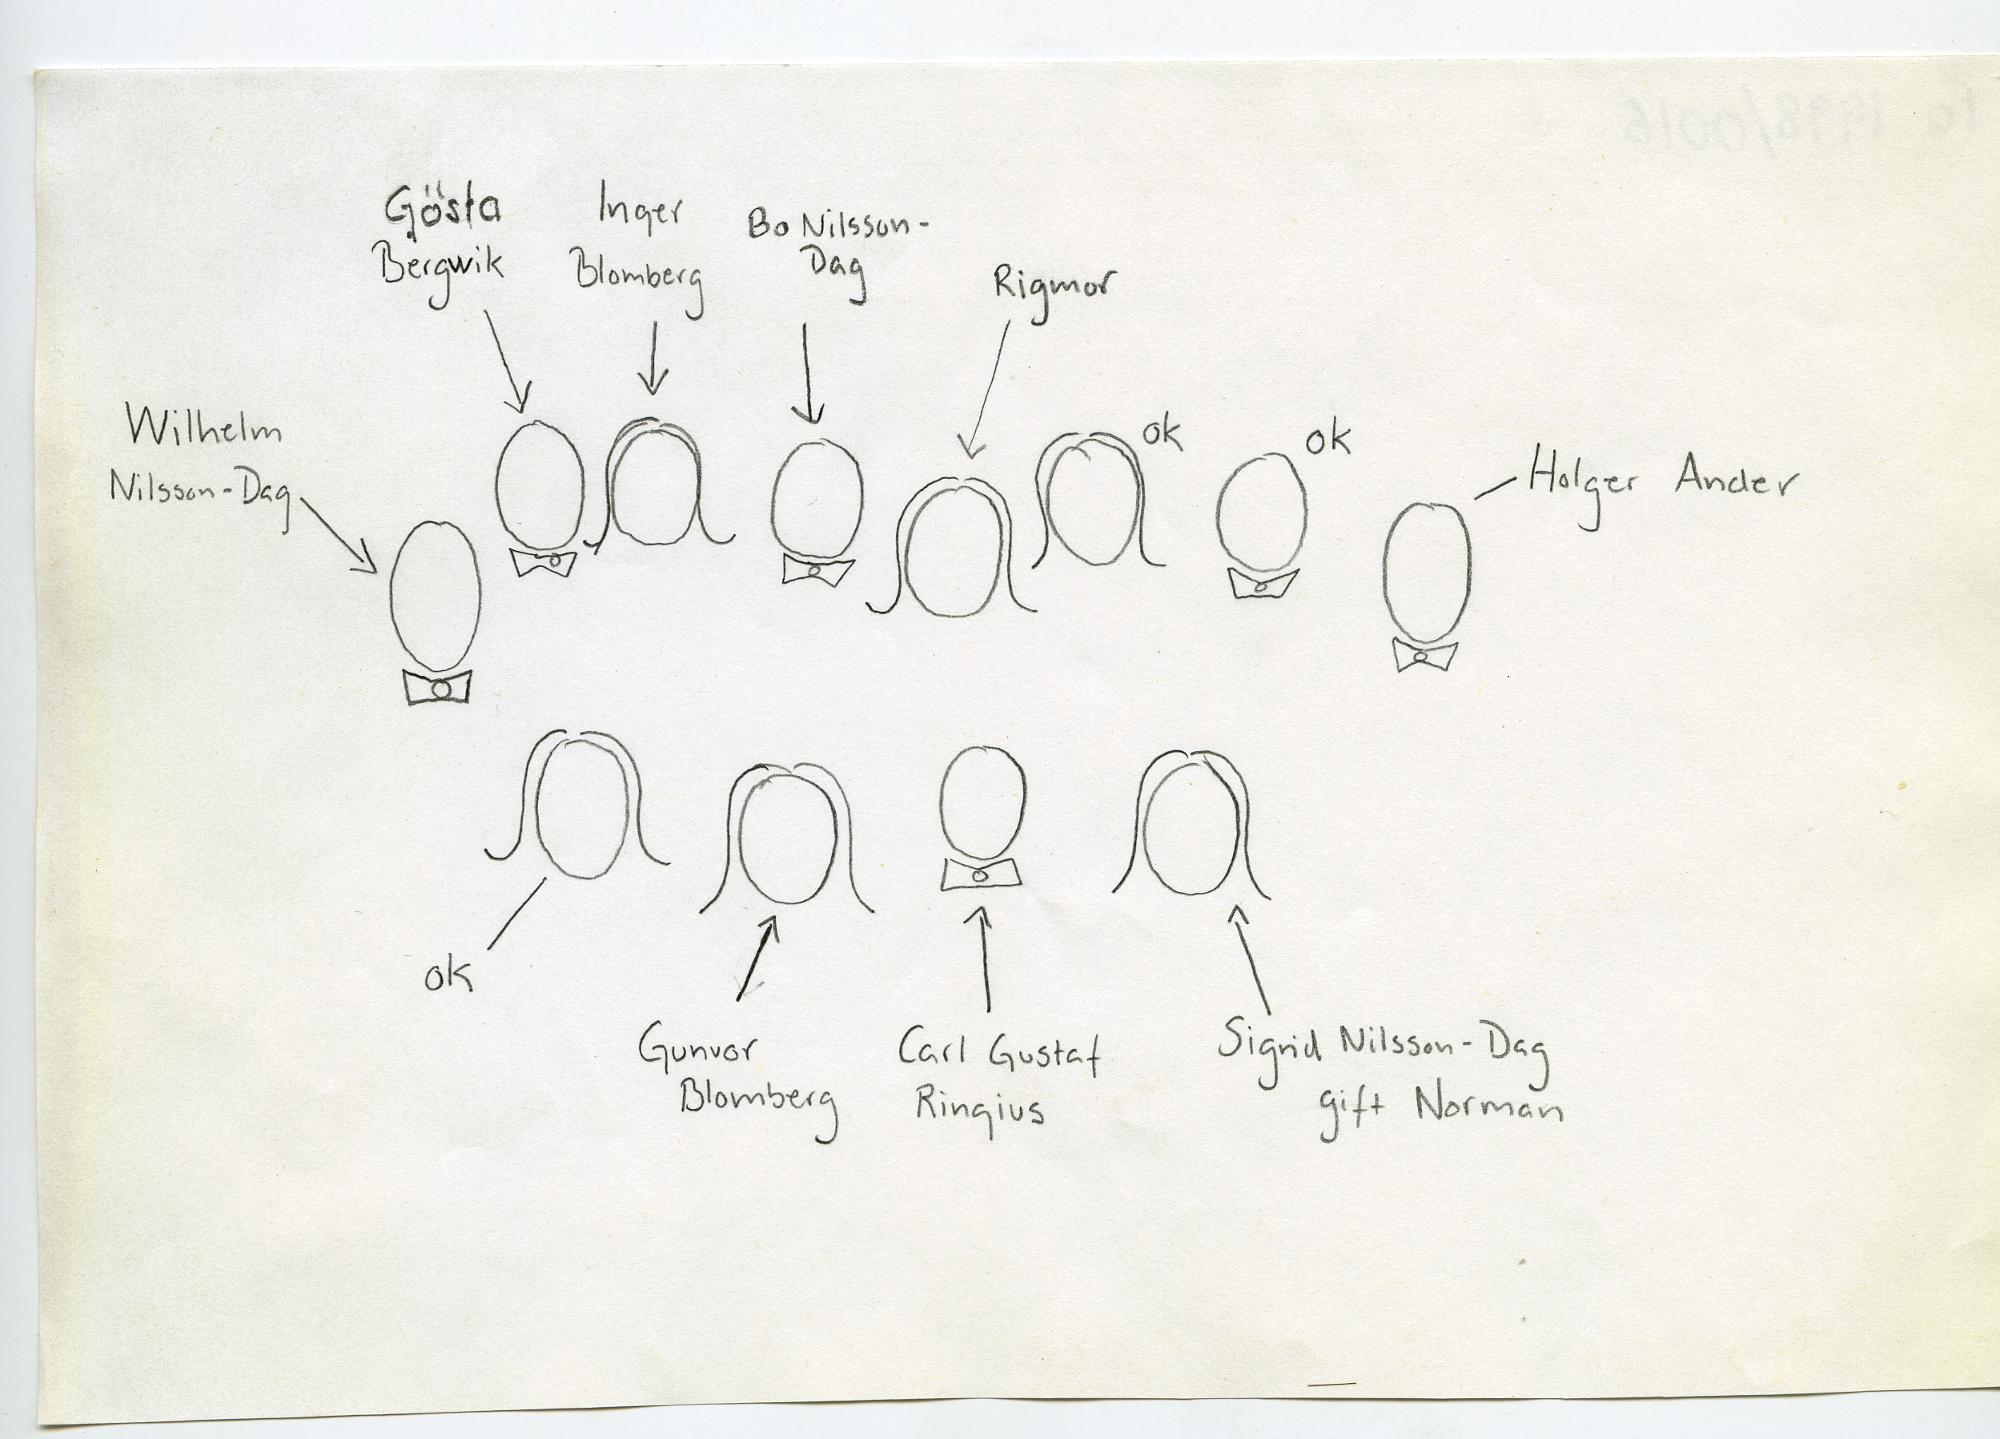 Gösta
Bergwik
Inger
Blomberg
Bo Nilsson-
Dag
Rigmor
Wilhelm
Nilsson-Dag
ok
ok
Holger Ander
ok
Gunvor
Blomberg
Carl Gustaf
Ringius
Sigrid Nilsson-Dag
gift Norman